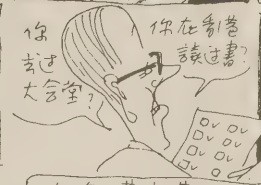 你
去过
大会堂?
你在香港
讀过書?